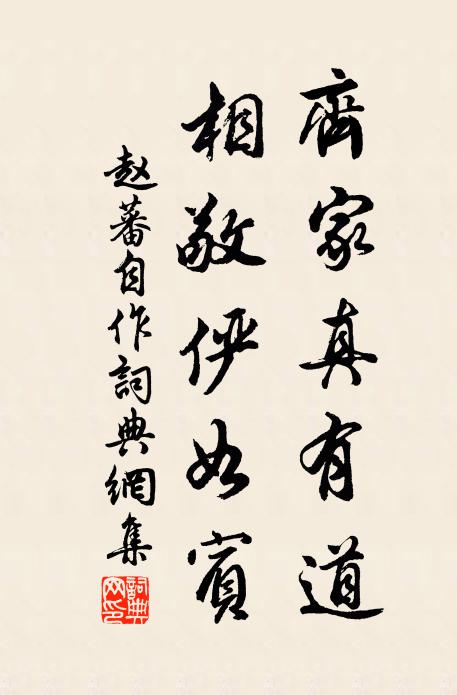 齊家真有道
相敬俨如賓
赵蕃自作詞典網集
詞典網印